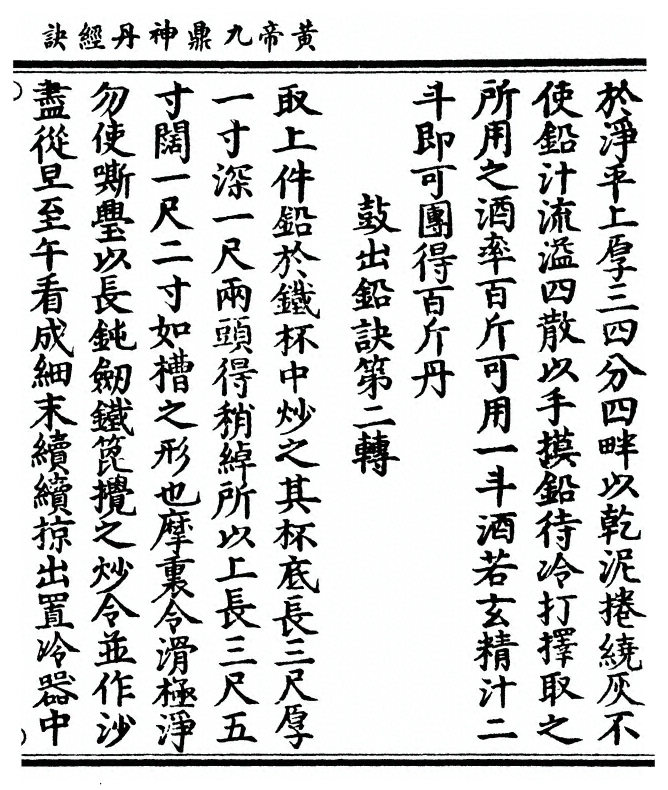 黃帝九鼎神丹經訣
於淨平上厚三四分四畔以乾泥捲繞灰不
使鉛汁流溢四散以手摸鉛待冷打擇取之
所用之酒率百斤可用一斗酒若玄精汁二
斗即可團得百斤丹
鼓出鉛訣第二轉
取上件鉛於鐵杯中炒之其杯底長三尺厚
一寸深一尺兩頭得稍綽所以上長三尺五
寸闊一尺二寸如槽之形也摩裏令滑極淨
勿使嘶璺以長鈍劒鐵篦攪之炒令並作沙
盡從旦至午看成細末續續掠出置冷器中